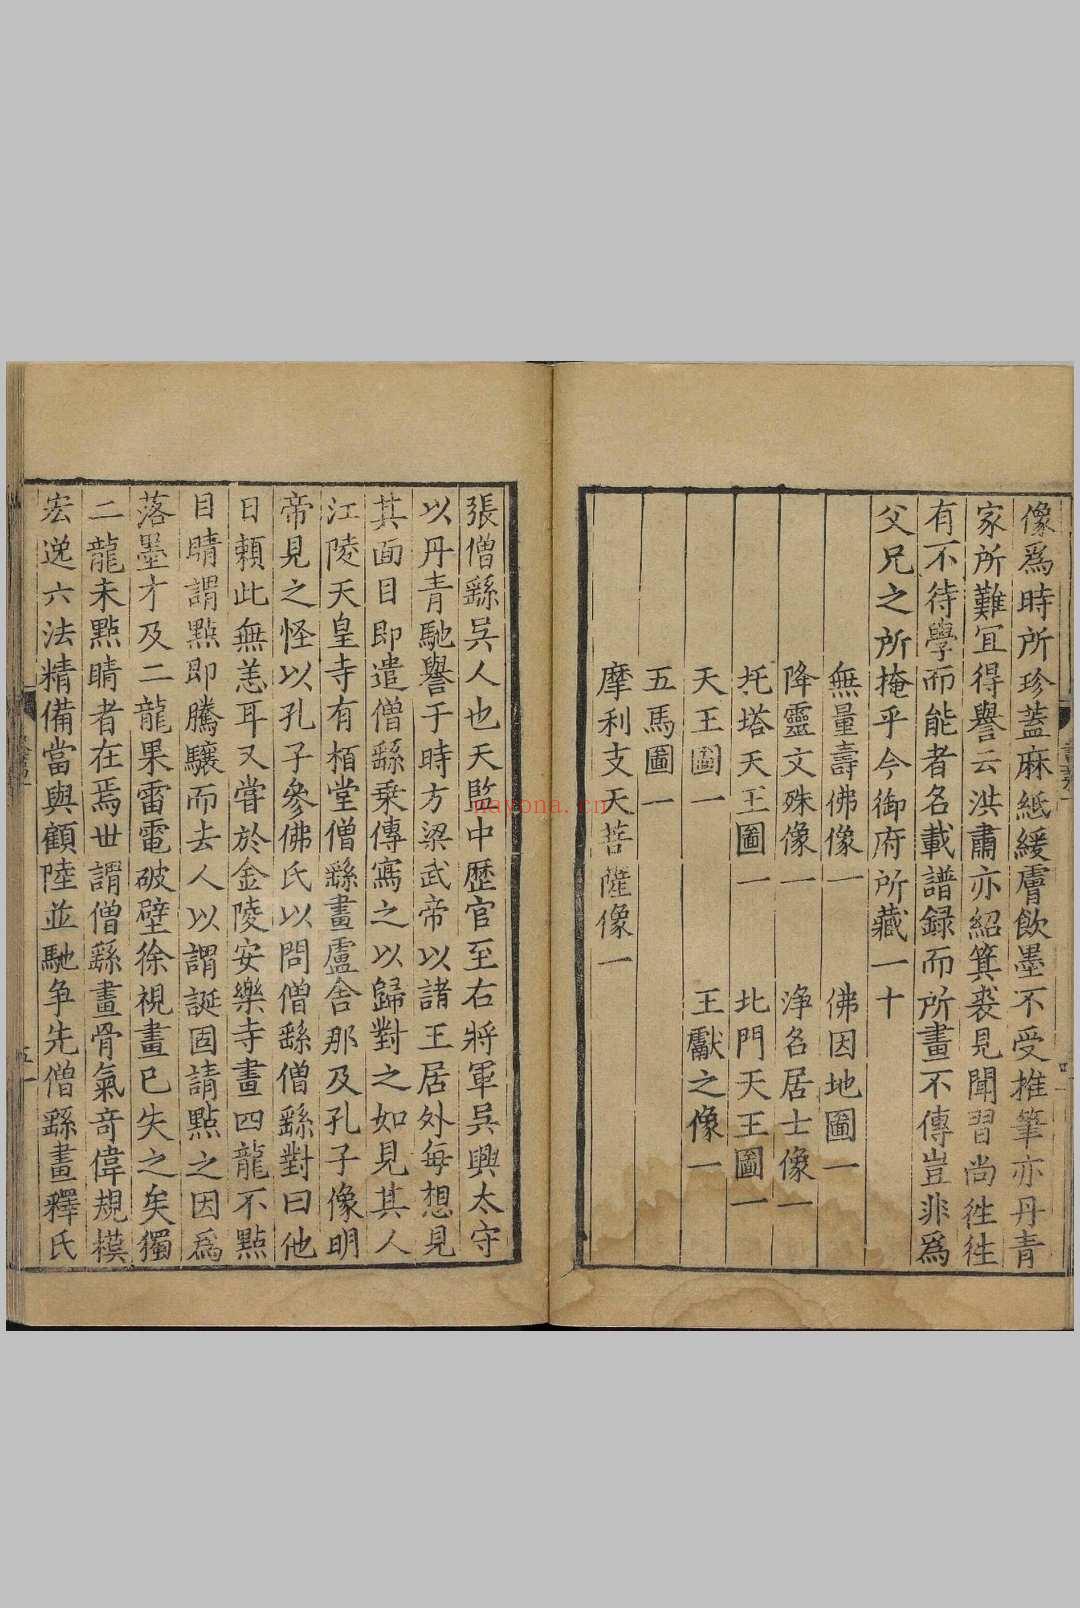 像爲時所珍蓋麻紙緩膚飲墨不受推筆亦丹青
家所難冝得譽云洪肅亦紹箕裘見聞習尚徃徃
有不待學而能者名載譜録而所畫不傳豈非爲
父兄之所掩乎今御府所藏一十
無量壽佛像一　佛因地圖一
降靈文殊像一　浄名居士像一
托塔天王圖一　北門天王圖一
天王圖一　王獻之像一
五馬圖一
摩利支天菩薩像一
張僧繇吳人也天監中歷官至右將軍吳興太守
以丹青馳譽于時方梁武帝以諸王居外每想見
其面目即遣僧繇乗傳寫之以歸對之如見其人
江陵天皇寺有栢堂僧繇畫盧舍那及孔子像明
帝見之怪以孔子參佛氏以問僧繇僧繇對曰他
日賴此無恙耳又嘗於金陵安樂寺畫四龍不點
目睛謂點即騰驤而去人以謂誕固請點之因爲
落墨才及二龍果雷電破壁徐視畫已失之矣獨
二龍未點睛者在焉世謂僧繇畫骨氣竒偉規模
宏逸六法精備當與顧陸並馳争先僧繇畫釋氏
nayona.cn